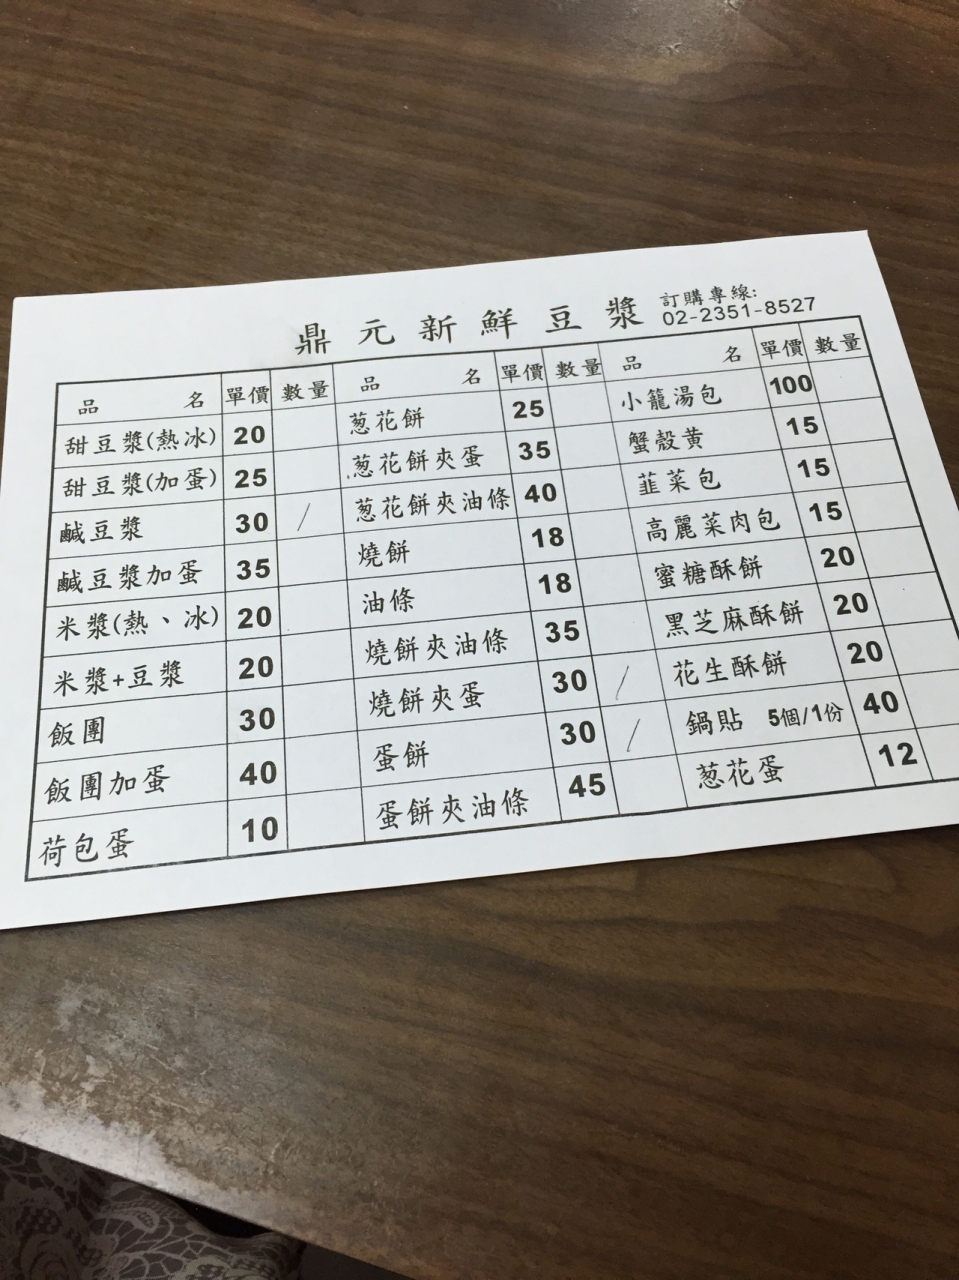 鼎元新鮮豆漿
訂購專線:
02-2351-8527
品名 單價 數量 品名 單價 數量 品名 單價 數量
甜豆漿(熱冰) 20 葱花餅 25 小籠湯包 100
甜豆漿(加蛋) 25 葱花餅夾蛋 35 蟹殼黄 15
鹹豆漿 30 / 葱花餅夾油條 40 韭菜包 15
鹹豆漿加蛋 35 燒餅 18 高麗菜肉包 15
米漿(熱、冰) 20 油條 18 蜜糖酥餅 20
米漿+豆漿 20 燒餅夾油條 35 黑芝麻酥餅 20
飯團 30 燒餅夾蛋 30 / 花生酥餅 20
飯團加蛋 40 蛋餅 30 / 鍋貼 5個/1份 40
荷包蛋 10 蛋餅夾油條 45 葱花蛋 12